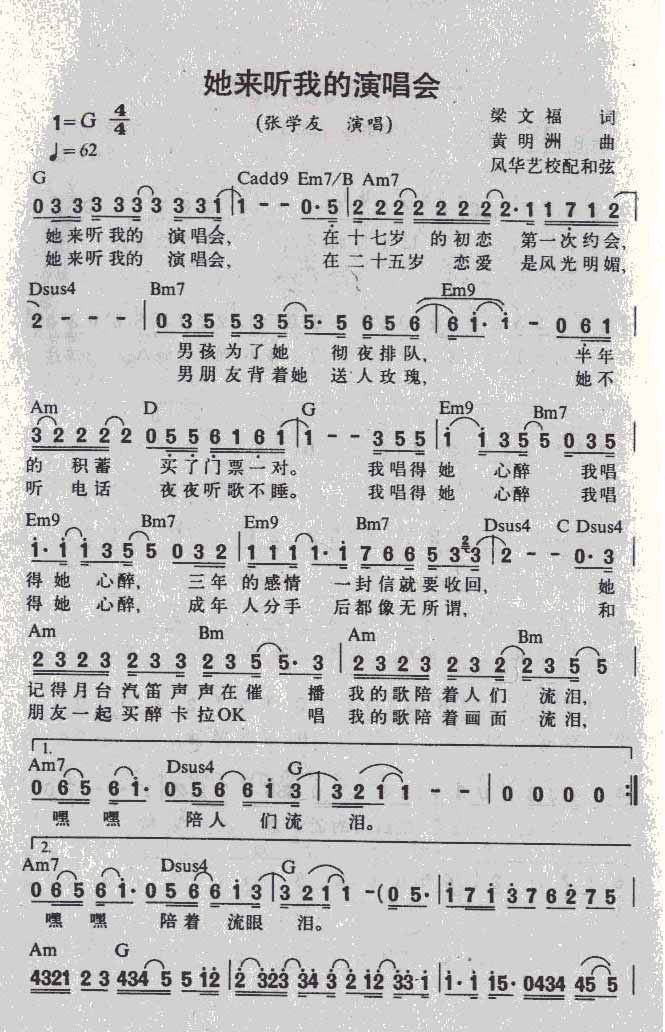 她来听我的演唱会
1=G 4/4
(张学友 演唱)
梁文福 词
♩=62
黄明洲 曲
风华艺校配和弦
G Cadd9 Em7/B Am7
0 3 3 3 3 3 3 3 3 1 | 1 - - 0·5 | 2 2 2 2 2 2 2 2·1 1 7 1 2
她来听我的 演唱会, 在十七岁 的初恋 第一次约会,
她来听我的 演唱会, 在二十五岁 恋爱 是风光明媚,
Dsus4 Bm7 Em9
2 - - - | 0 3 5 5 3 5 5· 5 6 5 6 | 6 1· 1 - 0 6 1
男孩为了她 彻夜排队, 半年
男朋友背着她 送人玫瑰, 她不
Am D G Em9 Bm7
3 2 2 2 2 2 0 5 5 6 1 6 1 | 1 - - 3 5 5 | 1 1 3 5 5 0 3 5
的 积蓄 买了门票一对。 我唱得她 心醉 我唱
听 电话 夜夜听歌不睡。 我唱得她 心醉 我唱
Em9 Bm7 Em9 Bm7 Dsus4 C Dsus4
1· 1 1 3 5 5 0 3 2 | 1 1 1 1· 1 7 6 6 5 3 3 | 2 - - 0·3
得她 心醉, 三年的感情 一封信就要收回, 她
得她 心醉, 成年人分手 后都像无所谓, 和
Am Bm Am Bm
2 3 2 3 2 3 3 2 3 5 5· 3 | 2 3 2 3 2 3 2 2 3 5 5
记得月台汽笛声声在催 播 我的歌陪着人们 流泪,
朋友一起买醉卡拉OK 唱 我的歌陪着画面 流泪,
1.
Am7 Dsus4 G
0 6 5 6 1· 0 5 6 6 1 3 | 3 2 1 1 - - | 0 0 0 0 :‖
嘿 嘿 陪人 们流 泪。
2.
Am7 Dsus4 G
0 6 5 6 1· 0 5 6 6 1 3 | 3 2 1 1 -(0 5· | 1 7 1 3 7 6 2 7 5
嘿 嘿 陪着 流眼 泪。
Am G
4321 2 3 434 5 5 12 | 2 323 34 3 2 12 33·1 | 1·1 15· 0434 45 5